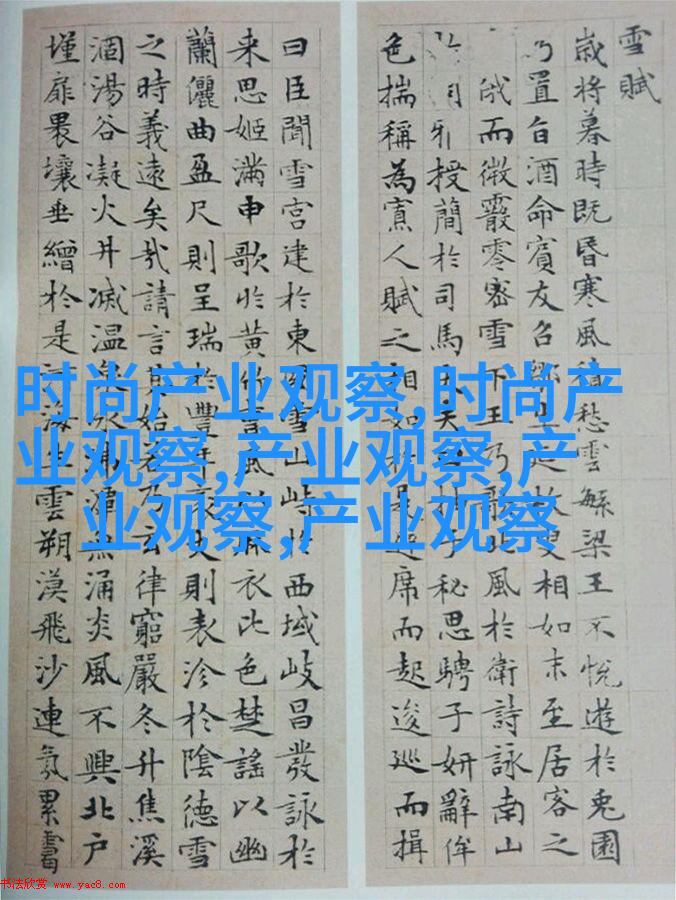 雪賦
歲將暮時既昏寒風積愁雲繁梁王不悅遊於兔園
乃置旨酒命賓友召鄒生延枚叟相如末至居客之
俄而微霰零密雪下王乃歌北風於衛詩詠南山
雅授簡於司馬大抽子秘思騁子妍辭侔
色揣稱為寡人賦之相如於是避席而起逡巡而揖
曰臣聞雪宮建於東國雪山峙於西域岐昌發詠於
来思姬滿申歌於黃竹曹風以麻衣比色楚謠以幽
蘭儷曲盈尺則呈瑞於豐年袤丈則表沴於陰德雪
之時義遠矣哉請言其始若乃玄律窮嚴冬升焦溪
涸湯谷凝火井滅溫泉冰沸潭無涌炎風不興北戶
墐扉裸壤垂繒於是河海生雲朔漠飛沙連氛累靄
时尚产业观察,时尚产
业观察,产业观察,产
业观察,产业观察
书法欣赏 www.yac8.com